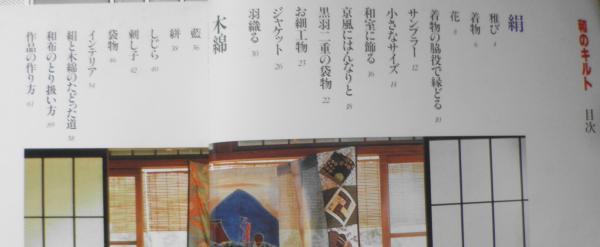 和のキルト 目次
絹
雅び 4
着物 6
花 8
着物の脇役で縁どる 10
サンプラー 12
小さなサイズ 14
和室に飾る 16
京風にはんなりと 18
黒羽二重の袋物 22
お細工物 23
ジャケット 26
羽織る 30
木綿
藍 36
絣 38
しじら 40
刺し子 42
袋物 46
インテリア 54
絹と木綿のたどった道 58
和布のとり扱い方 60
作品の作り方 61